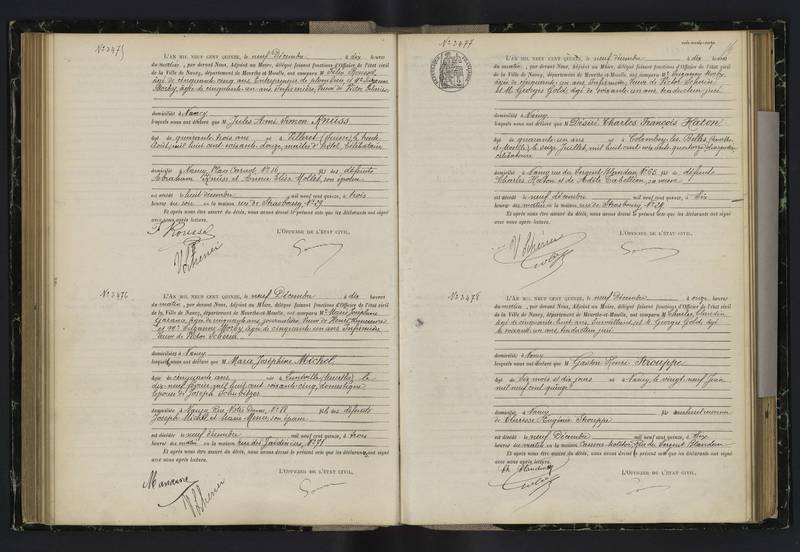 No 2475
L'AN MIL NEUF CENT QUINZE, le neuf Décembre à dix heures
du matin, par devant Nous, Adjoint au Maire, délégué faisant fonctions d'Officier de l'état civil
de la Ville de Nancy, département de Meurthe-et-Moselle, ont comparu M
âgé de cinquante cinq ans, Entrepreneur de plomberie et Suzanne
Morby, âgée de cinquante un ans Infirmière, Veuve de Victor
domiciliés à Nancy
lesquels nous ont déclaré que M Jules Aimé Simon
âgé de quarante trois ans né à (Suisse) le trente
Août mil huit cent soixante douze, maître d'hôtel, Célibataire
domicilié à Nancy, Place Carnot No 16 fils des défunts
Abraham et Emma Elise Mollet, son épouse
est décédé le huit décembre mil neuf cent quinze, à trois
heures du soir en la maison rue de Strasbourg, No 29
Et après nous être assuré du décès, nous avons dressé le présent acte que les déclarants ont signé
avec nous après lecture.
L'OFFICIER DE L'ÉTAT CIVIL,
V Scherrer
No 2476
L'AN MIL NEUF CENT QUINZE, le neuf Décembre à dix heures
du matin, par devant Nous, Adjoint au Maire, délégué faisant fonctions d'Officier de l'état civil
de la Ville de Nancy, département de Meurthe-et-Moselle, ont comparu Me Marie Joséphine
âgée de cinquante ans, journalière, Veuve de Henri
et Me Suzanne Morby, âgée de cinquante un ans Infirmière
Veuve de Victor
domiciliés à Nancy
lesquels nous ont déclaré que M Marie Joséphine Michel
âgée de cinquante ans née à Lunéville (Meurthe) le
dix neuf février mil huit cent soixante cinq, domestique
Epouse de Joseph
domiciliée à Nancy, Rue Notre Dame, No 88 fille des défunts
Joseph Michel et son épouse
est décédée le neuf décembre mil neuf cent quinze, à trois
heures du matin en la maison rue des Jardiniers, No 71
Et après nous être assuré du décès, nous avons dressé le présent acte que les déclarants ont signé
avec nous après lecture.
L'OFFICIER DE L'ÉTAT CIVIL,
V Scherrer
No 2477
L'AN MIL NEUF CENT QUINZE, le neuf décembre à dix heures
du matin, par devant Nous, Adjoint au Maire, délégué faisant fonctions d'Officier de l'état civil
de la Ville de Nancy, département de Meurthe-et-Moselle, ont comparu Me Suzanne Morby
âgée de cinquante un ans, Infirmière, Veuve de Victor
et M. Georges Gold, âgé de soixante un ans, traducteur juré
domiciliés à Nancy
lesquels nous ont déclaré que M Désiré Charles François Haton
âgé de quarante un ans né à Colombey les Belles (Meurthe
et Moselle) le onze Juillet, mil huit cent soixante quatorze
célibataire
domicilié à Nancy rue du Sergent Blandan No 65 fils de défunt
Charles Haton et de Adèle, sa veuve
est décédé le neuf décembre mil neuf cent quinze, à six
heures du matin en la maison rue de Strasbourg, No 29
Et après nous être assuré du décès, nous avons dressé le présent acte que les déclarants ont signé
avec nous après lecture.
L'OFFICIER DE L'ÉTAT CIVIL,
V Scherrer
No 2478
L'AN MIL NEUF CENT QUINZE, le neuf Décembre à onze heures
du matin, par devant Nous, Adjoint au Maire, délégué faisant fonctions d'Officier de l'état civil
de la Ville de Nancy, département de Meurthe-et-Moselle, ont comparu M Charles Blandin
âgé de cinquante huit ans Surveillant, et M. Georges Gold, âgé
de soixante un ans, traducteur juré
domiciliés à Nancy
lesquels nous ont déclaré que M Gaston Henri Strouppe
âgé de Dix mois et dix jours né à Nancy, le vingt neuf
mil neuf cent quinze
domicilié à Nancy
de Clarisse Eugénie Strouppe
est décédé le neuf Décembre mil neuf cent quinze, à
heures du matin en la maison Rue du Sergent Blandan
Et après nous être assuré du décès, nous avons dressé le présent acte que les déclarants ont signé
avec nous après lecture.
Ch Blandin
L'OFFICIER DE L'ÉTAT CIVIL,